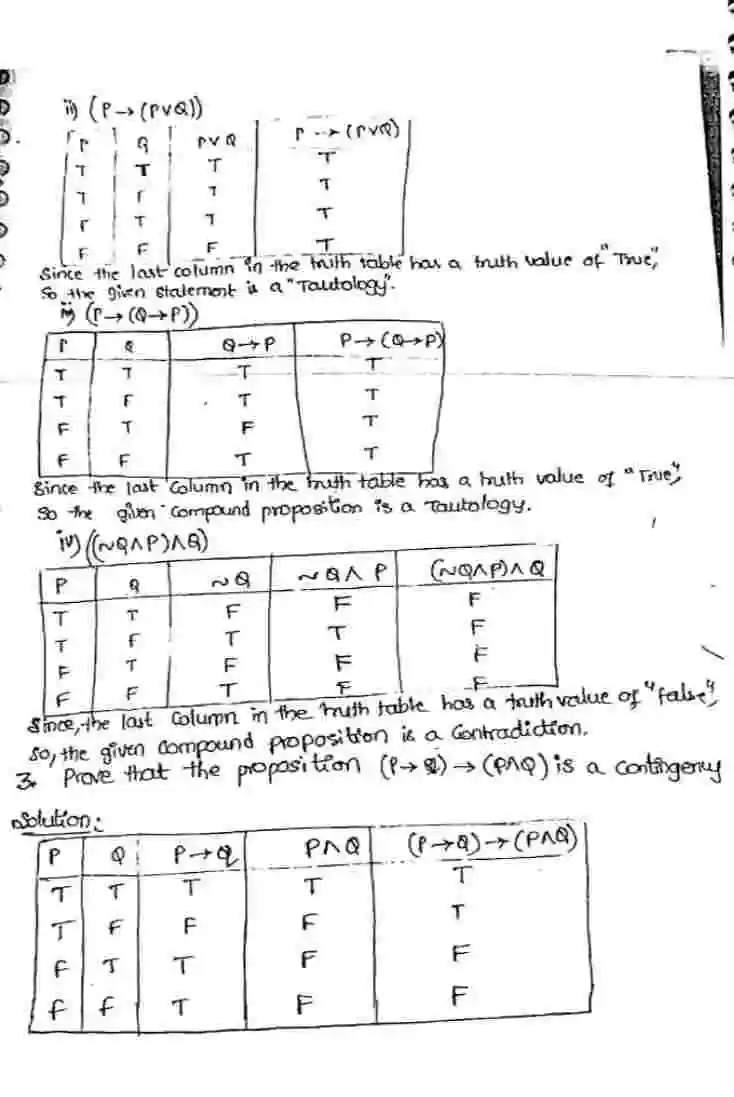 ii) (P→(PVQ))
P Q PVQ P → (PVQ)
T T T T
T F T T
F T T T
F F F T
Since the last column in the truth table has a truth value of "True",
So the given statement is a "Tautology".
(P→(Q→P))
P Q Q→P P→(Q→P)
T T T T
T F T T
F T F T
F F T T
Since the last column in the truth table has a truth value of "True",
So the given compound proposition is a Tautology.
iv) ((~Q∧P)∧Q)
P Q ~Q ~Q∧P (~Q∧P)∧Q
T T F F F
T F T T F
F T F F F
F F T F F
Since, the last column in the truth table has a truth value of "false",
So, the given compound proposition is a Contradiction.
3. Prove that the proposition (P→Q)→(P∧Q) is a contingency
Solution:
P Q P→Q P∧Q (P→Q)→(P∧Q)
T T T T T
T F F F T
F T T F F
F F T F F